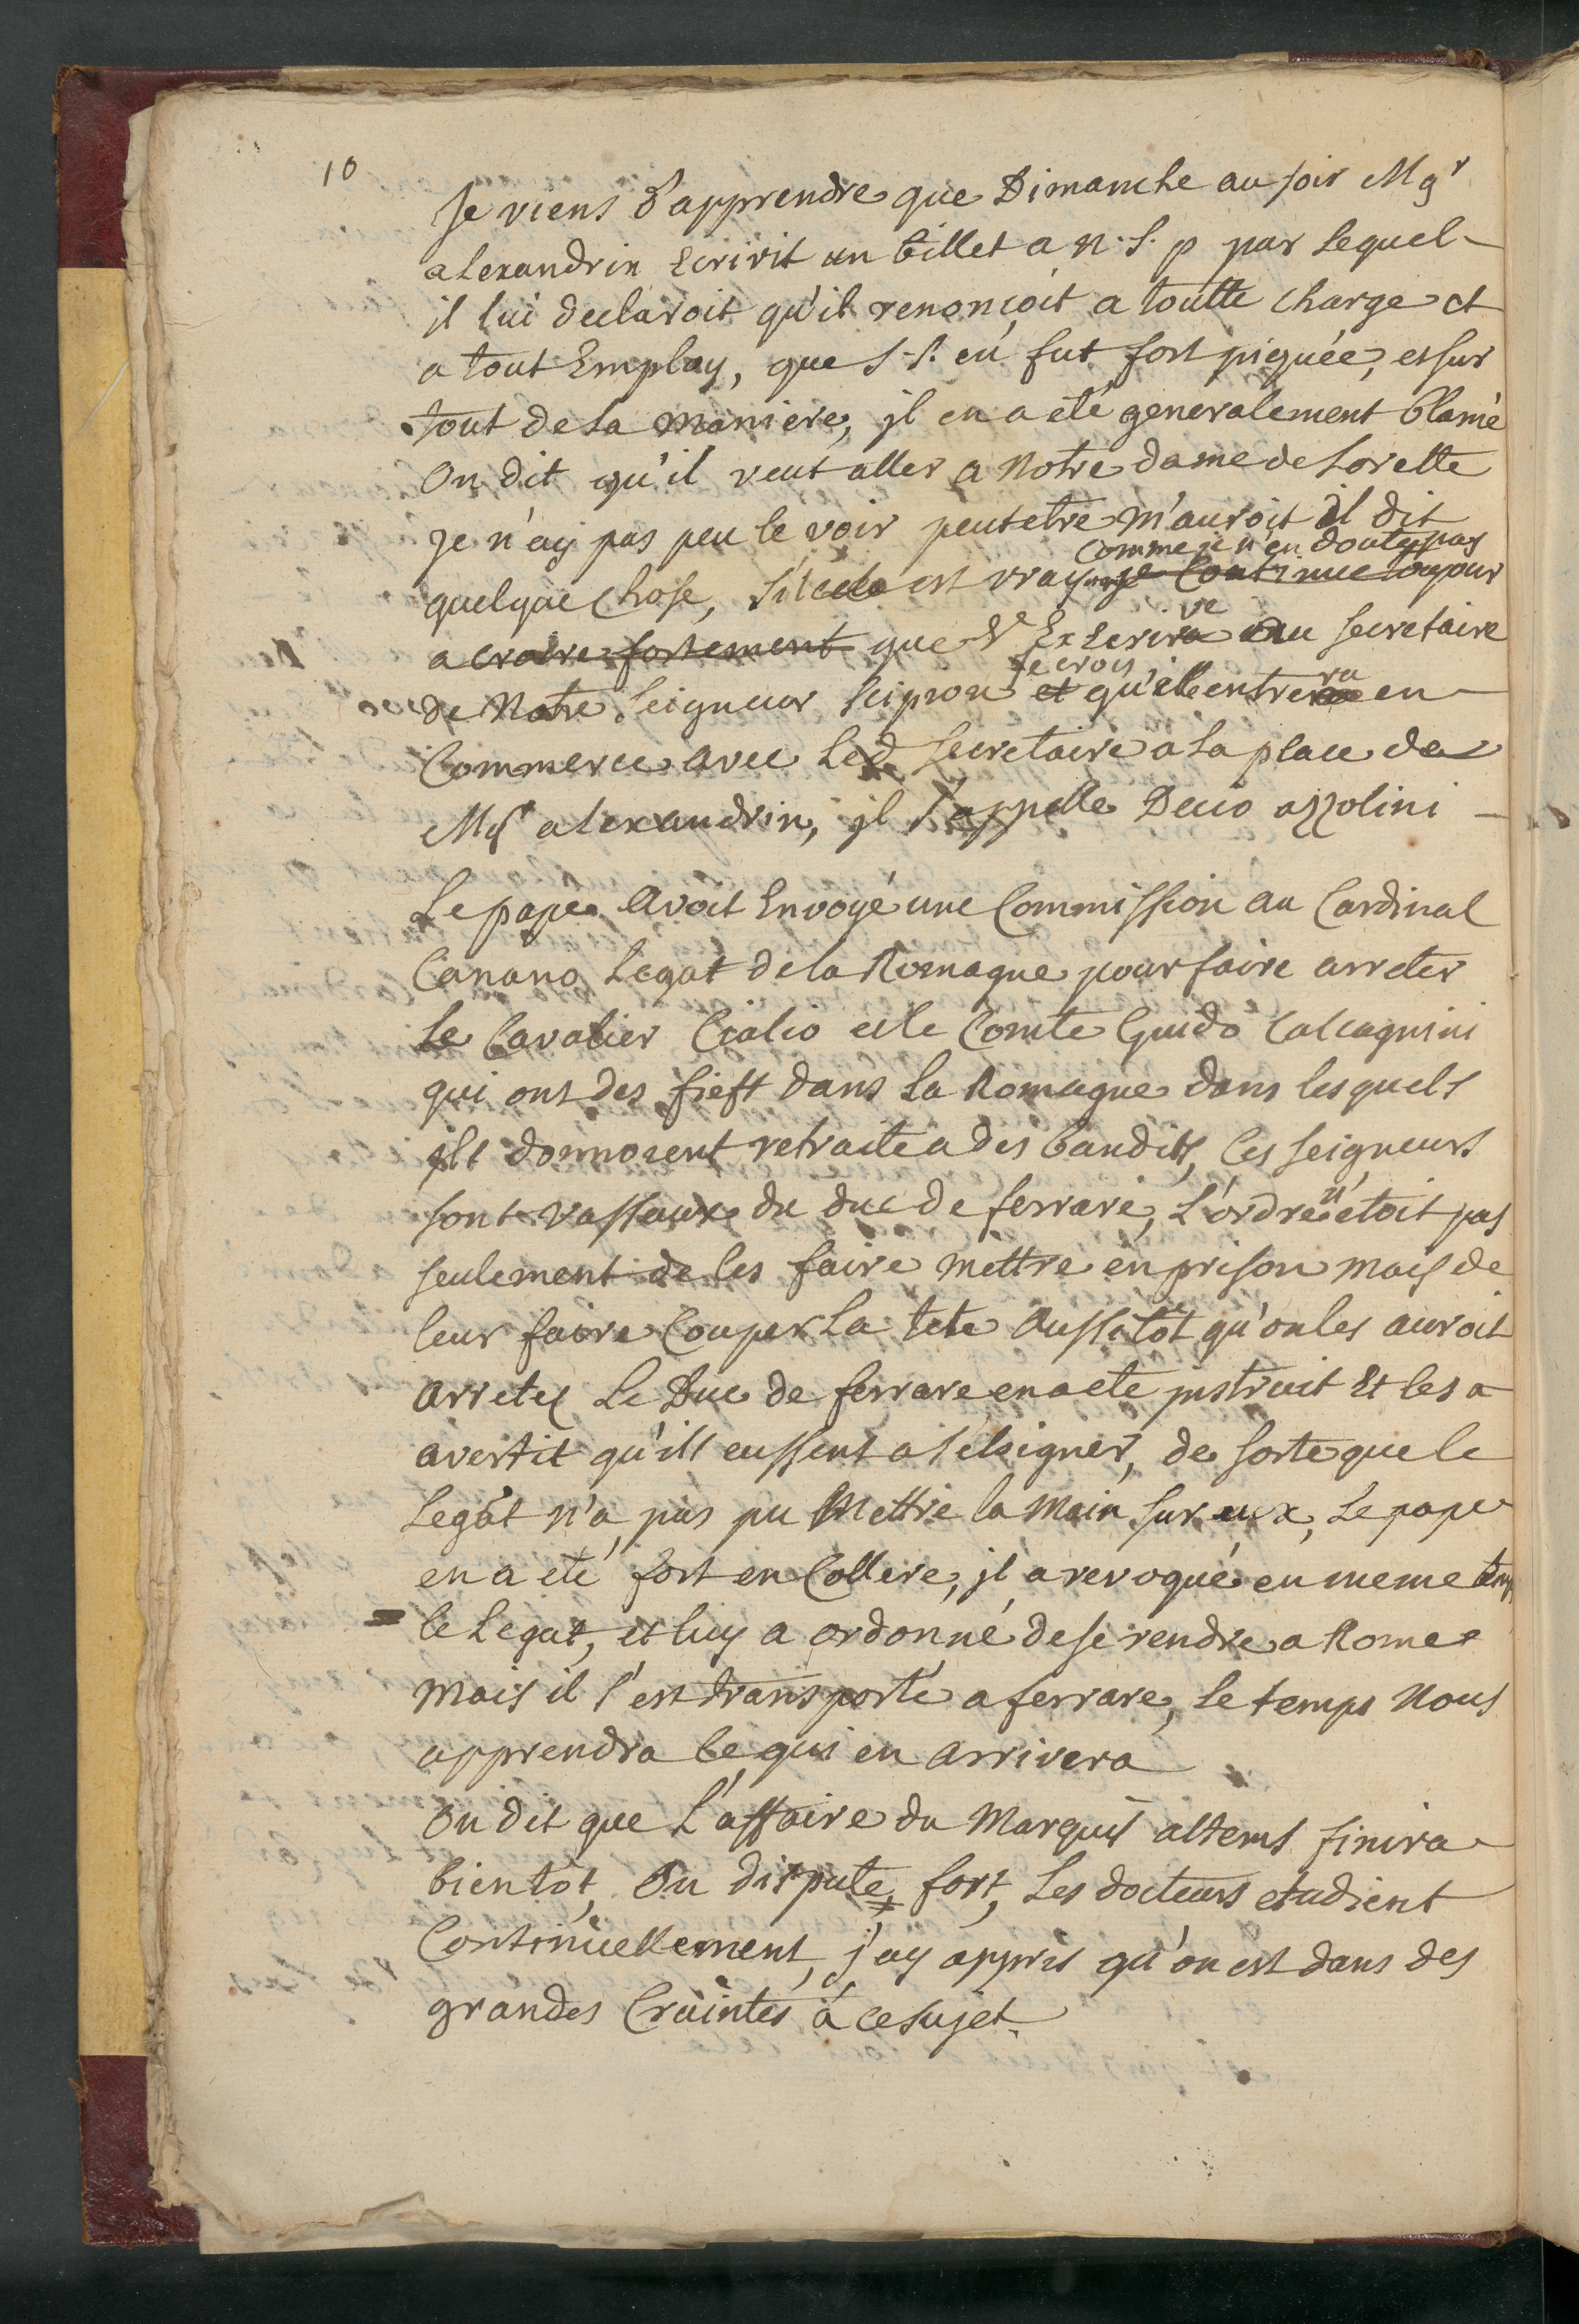 10
Je viens d'apprendre que Dimanche au soir Mgr
alexandrin Ecrivit un billet a N. S. p par lequel
il lui declaroit qu'il renonçoit a toutte charge et
a tout Employ, que S. S. en fut fort piquée, et sur
tout de la maniere, jl en a eté generalement blamé
On dit qu'il veut aller a Notre dame de Lorette
Je n'ay pas peu le voir peutetre m'auroit il dit
comme je n'en doute pas
quelque chose, s'il cela est vray je continue toujour
a croire fortement que V.e Ex ecrive au secretaire
je crois
de Notre Seigneur Scipion et qu'elle entrera en
Commerce avec led. Secretaire a la place de
Mgr alexandrin, jl s'appelle Decio azzolini
Le pape avoit Envoyé une Commission au Cardinal
Canano Legat de la Romagne pour faire arreter
Le Cavalier Cialio et le Comte Guido Calcagnini
qui ont des fiefs dans la Romagne dans lesquels
ils donnoient retraite a des bandits, Ces seigneurs
sont vassaux du duc de ferrare, L'ordre n'etoit pas
seulement de les faire mettre en prison mais de
leur faire Couper La tete Aussitôt qu'on les auroit
arretez Le Duc de ferrare en a eté jnstruit Et les a
avertit qu'ils eussent a s'eloigner, de sorte que le
Legat n'a pas pu Mettre la main sur eux, Le pape
en a eté fort en Collere, jl a revoqué en meme temps
le Legat, et luy a ordonné de se rendre a Rome
mais il s'est transporté a ferrare, le temps Nous
apprendra ce qui en arrivera
On dit que L'affaire du Marquis altems finira
bientôt, On dispute fort, Les docteurs etudient
Continuellement, j'ay appris qu'on est dans des
grandes Craintes à ce sujet.